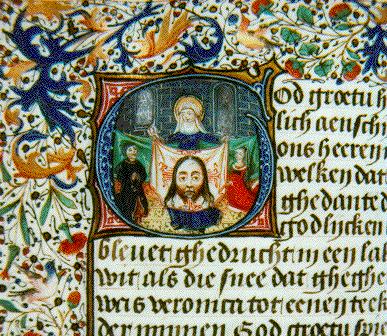 God groetu h
lich aenschi
ons heeren
welken dat
ghedante d
godlycken
bleuet ghedrucht in een la
wit als die snee dat ghegh
was veronica tot eenen teek
der minnen God groetu